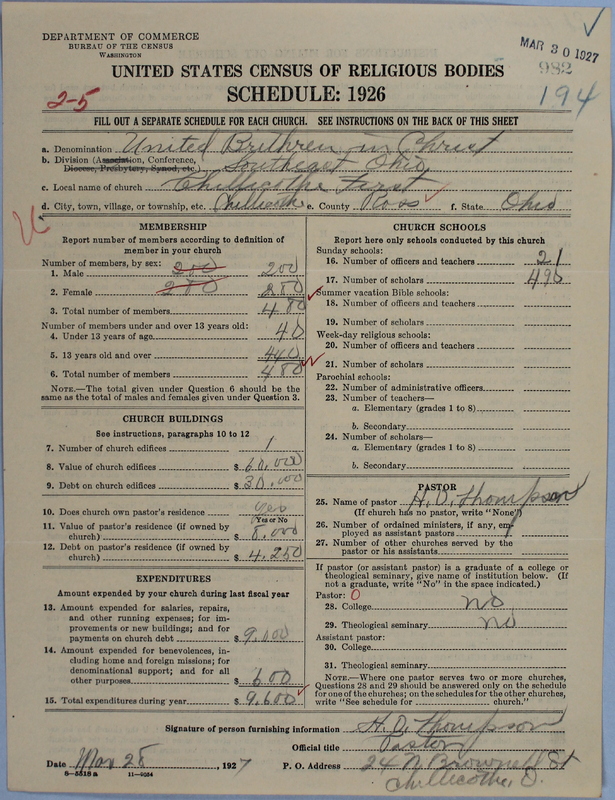 DEPARTMENT OF COMMERCE
BUREAU OF THE CENSUS
WASHINGTON
MAR 30 1927
982
194
2-5
UNITED STATES CENSUS OF RELIGIOUS BODIES
SCHEDULE: 1926
FILL OUT A SEPARATE SCHEDULE FOR EACH CHURCH. SEE INSTRUCTIONS ON THE BACK OF THIS SHEET
a. Denomination United Brethren in Christ
b. Division (Association, Conference, Diocese, Presbytery, Synod, etc.) Southeast Ohio
c. Local name of church Chillicothe First
d. City, town, village, or township, etc. Chillicothe e. County Ross f. State Ohio
MEMBERSHIP
Report number of members according to definition of
member in your church
Number of members, by sex:
1. Male 200 200
2. Female 280 280
3. Total number of members 480
Number of members under and over 13 years old:
4. Under 13 years of age 40
5. 13 years old and over 440
6. Total number of members 480
NOTE.—The total given under Question 6 should be
same as the total of males and females given under Question 3.
CHURCH BUILDINGS
See instructions, paragraphs 10 to 12
7. Number of church edifices 1
8. Value of church edifices $ 60,000
9. Debt on church edifices $ 30,000
10. Does church own pastor's residence yes
Yes or No
11. Value of pastor's residence (if owned by
church) $ 8,000
12. Debt on pastor's residence (if owned by
church) $ 4,250
EXPENDITURES
Amount expended by your church during last fiscal year
13. Amount expended for salaries, repairs,
and other running expenses; for im-
provements or new buildings; and for
payments on church debt $ 9,000
14. Amount expended for benevolences, in-
cluding home and foreign missions; for
denominational support; and for all
other purposes $ 600
15. Total expenditures during year $ 9,600
CHURCH SCHOOLS
Report here only schools conducted by this church
Sunday schools:
16. Number of officers and teachers 21
17. Number of scholars 490
Summer vacation Bible schools:
18. Number of officers and teachers
19. Number of scholars
Week-day religious schools:
20. Number of officers and teachers
21. Number of scholars
Parochial schools:
22. Number of administrative officers
23. Number of teachers—
a. Elementary (grades 1 to 8)
b. Secondary
24. Number of scholars—
a. Elementary (grades 1 to 8)
b. Secondary
PASTOR
25. Name of pastor H. D. Thompson
(If church has no pastor, write "None")
26. Number of ordained ministers, if any, em-
ployed as assistant pastors
27. Number of other churches served by the
pastor or his assistants
If pastor (or assistant pastor) is a graduate of a college or
theological seminary, give name of institution below. (If
not a graduate, write "No" in the space indicated.)
Pastor: 0
28. College no
29. Theological seminary no
Assistant pastor:
30. College
31. Theological seminary
NOTE.—Where one pastor serves two or more churches,
Questions 28 and 29 should be answered only on the schedule
for one of the churches; on the schedules for the other churches,
write "See schedule for church."
Signature of person furnishing information H. D. Thompson
Official title Pastor
Date Mar 28, 1927 P. O. Address 24 N. Brownell St
Chillicothe, O.
8-5518a 11-9034